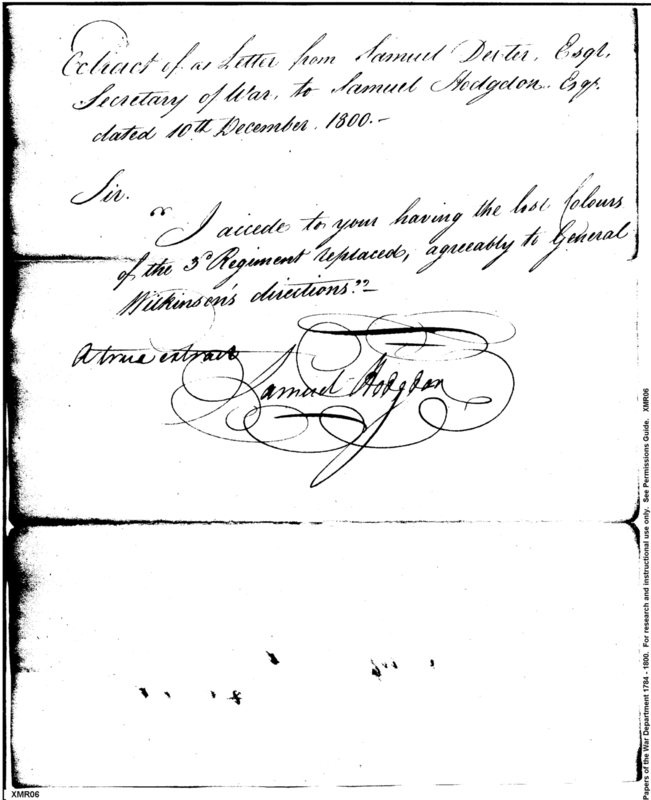 Extract of a Letter from Samuel Dexter, Esqr.
Secretary of War, to Samuel Hodgdon Esqr.
dated 10th December. 1800.-
Sir.
"I accede to your having the lost Colours
of the 3d Regiment replaced, agreeably to General
Wilkinson's directions."-
A true extract
Samuel Hodgdon
XMR06
Papers of the War Department 1784 - 1800. For research and instructional use only. See Permissions Guide. XMR06